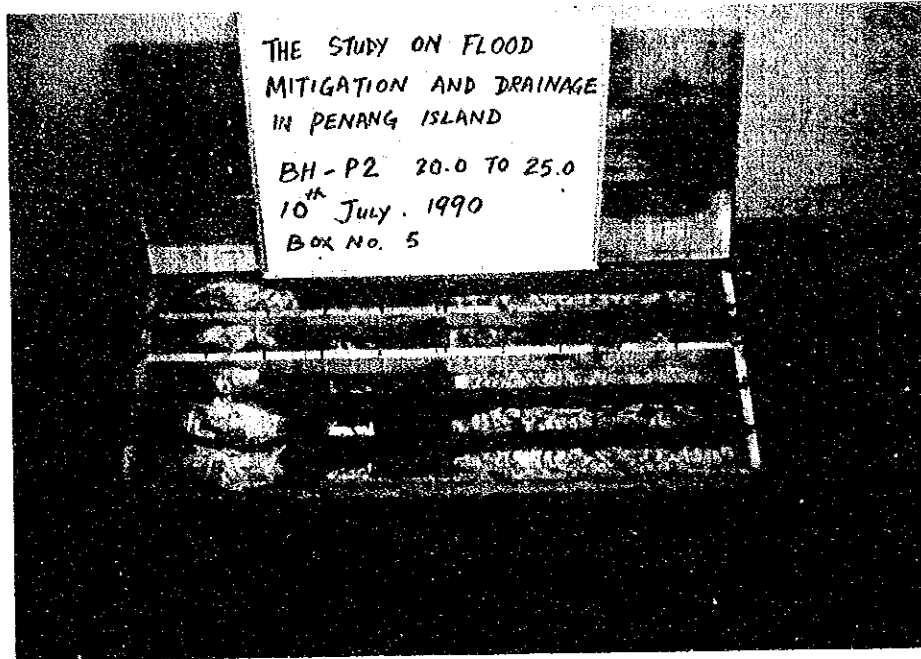 THE STUDY ON FLOOD
MITIGATION AND DRAINAGE
IN PENANG ISLAND
BH-P2 20.0 TO 25.0
10th JULY. 1990
BOX NO. 5